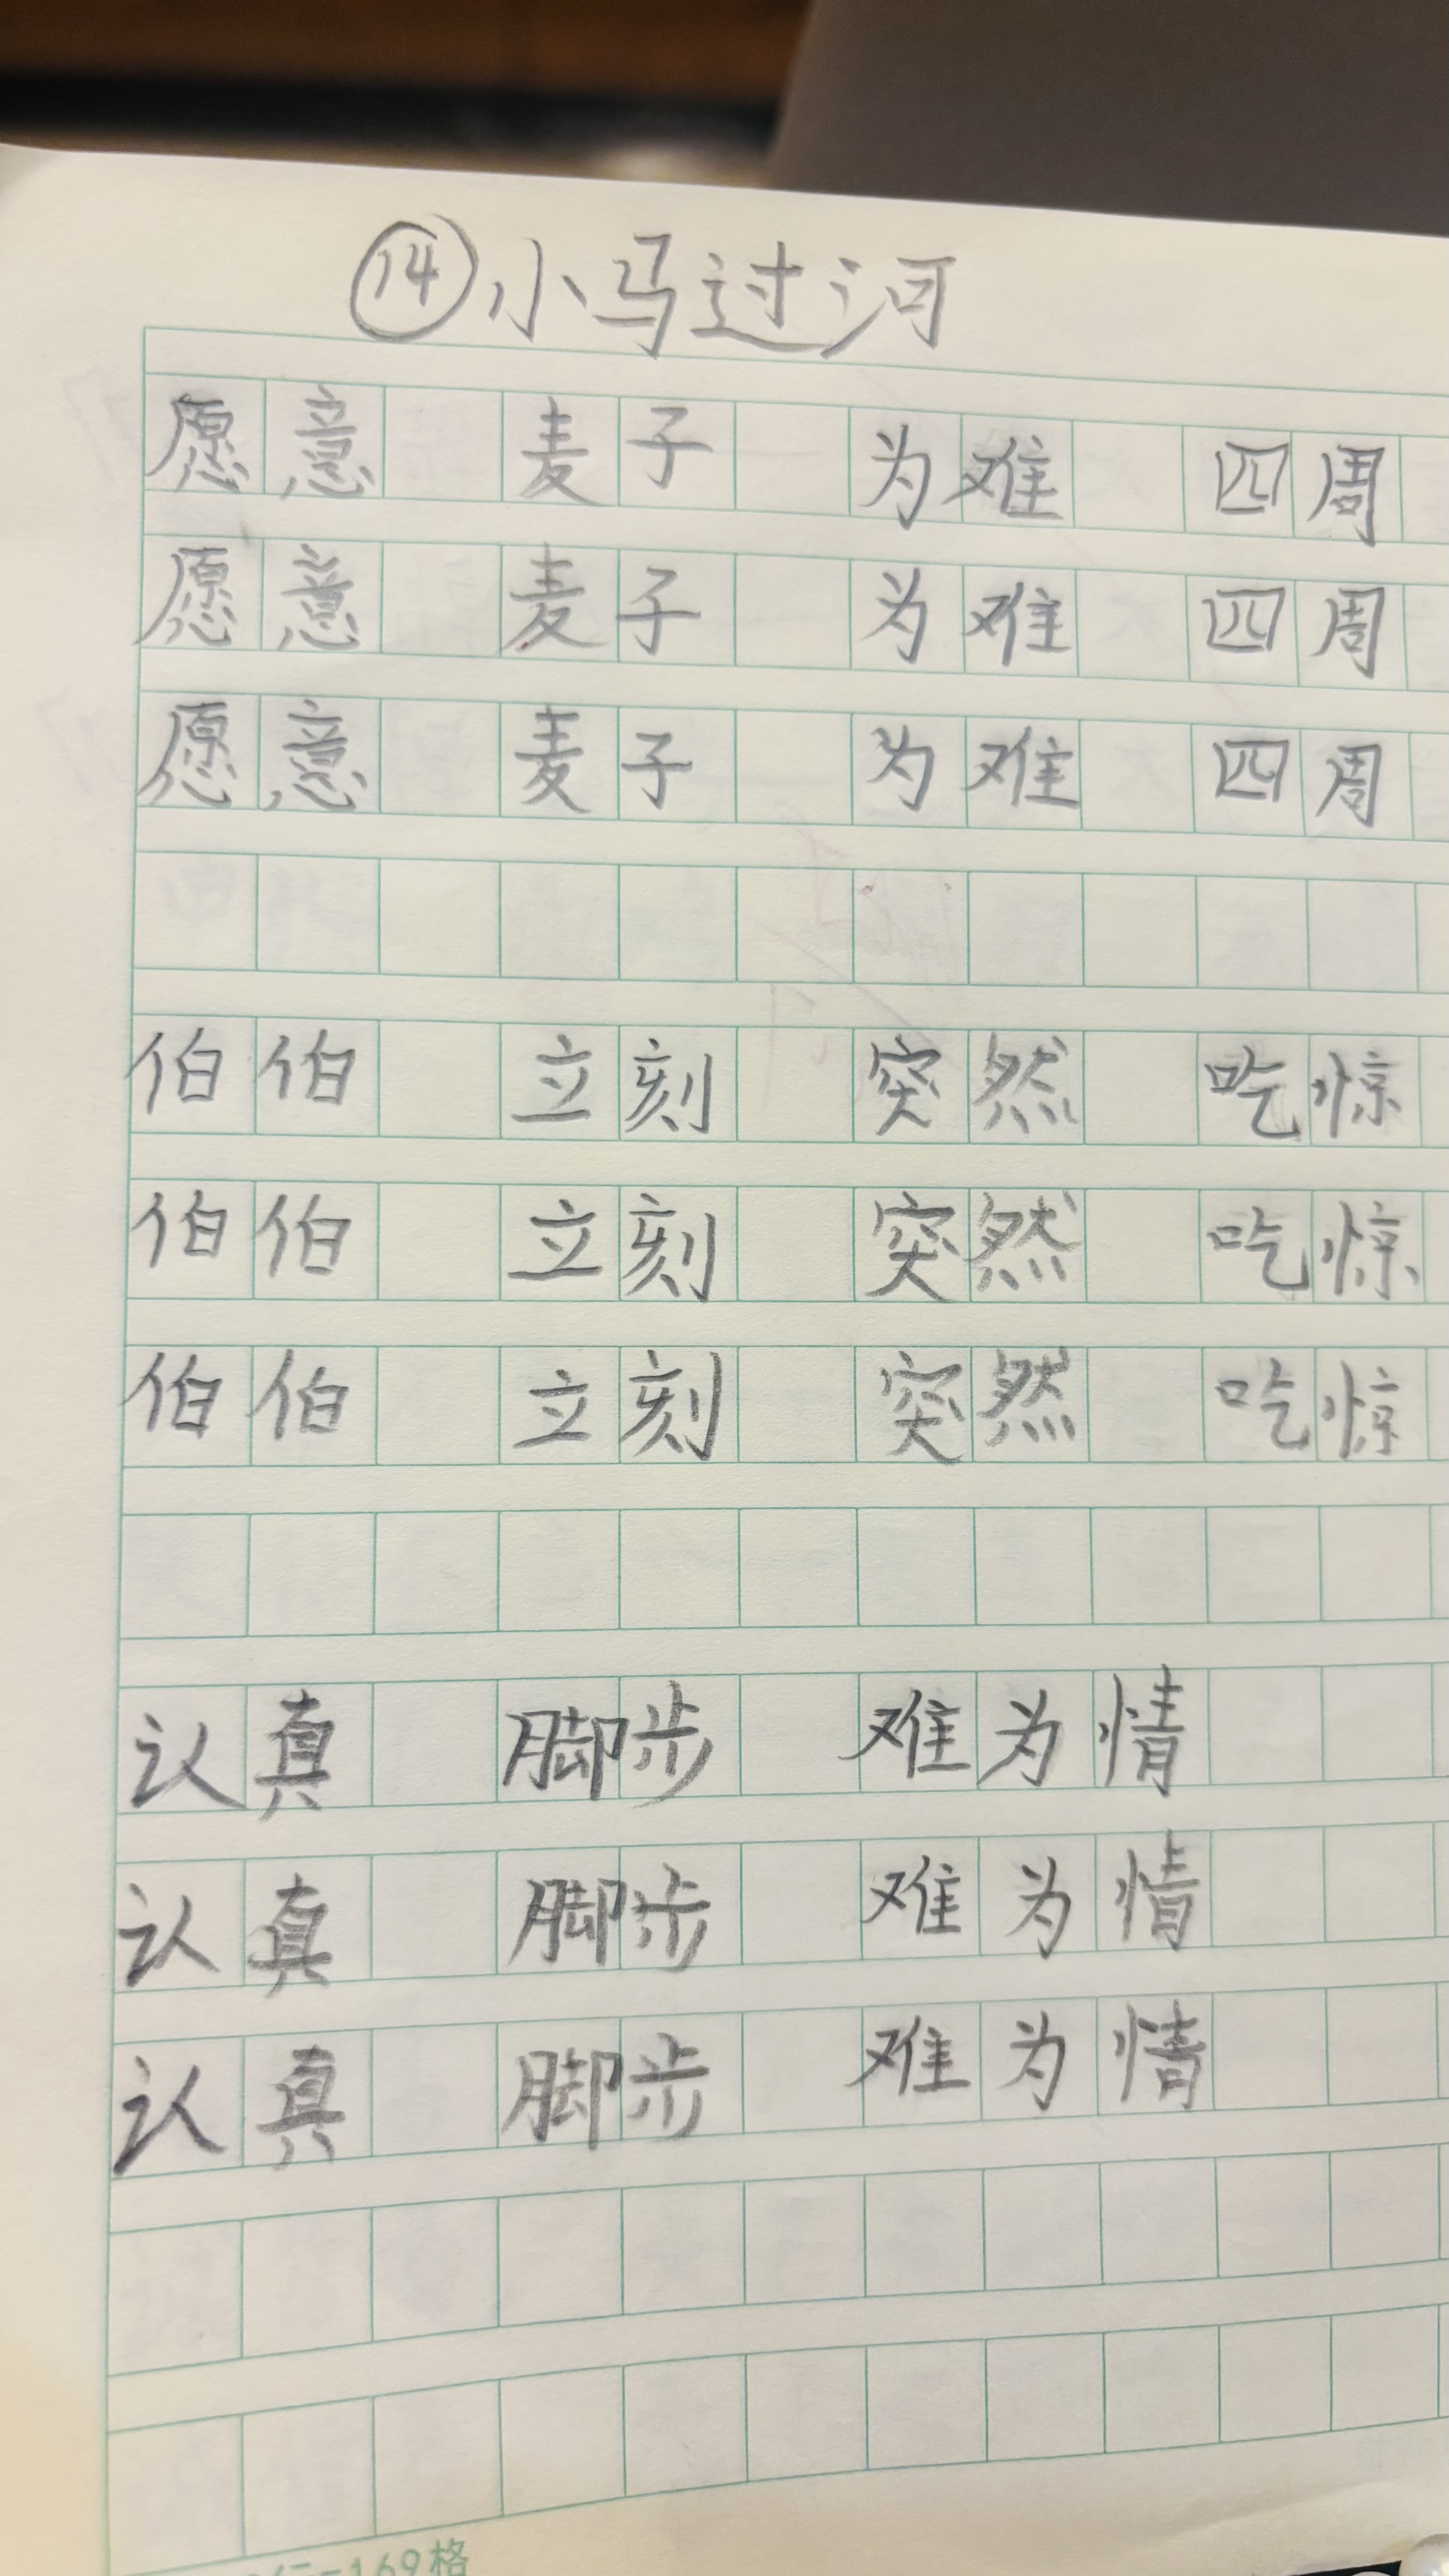 ⑭小马过河
愿意 麦子 为难 四周
愿意 麦子 为难 四周
愿意 麦子 为难 四周
伯伯 立刻 突然 吃惊
伯伯 立刻 突然 吃惊
伯伯 立刻 突然 吃惊
认真 脚步 难为情
认真 脚步 难为情
认真 脚步 难为情
=169格